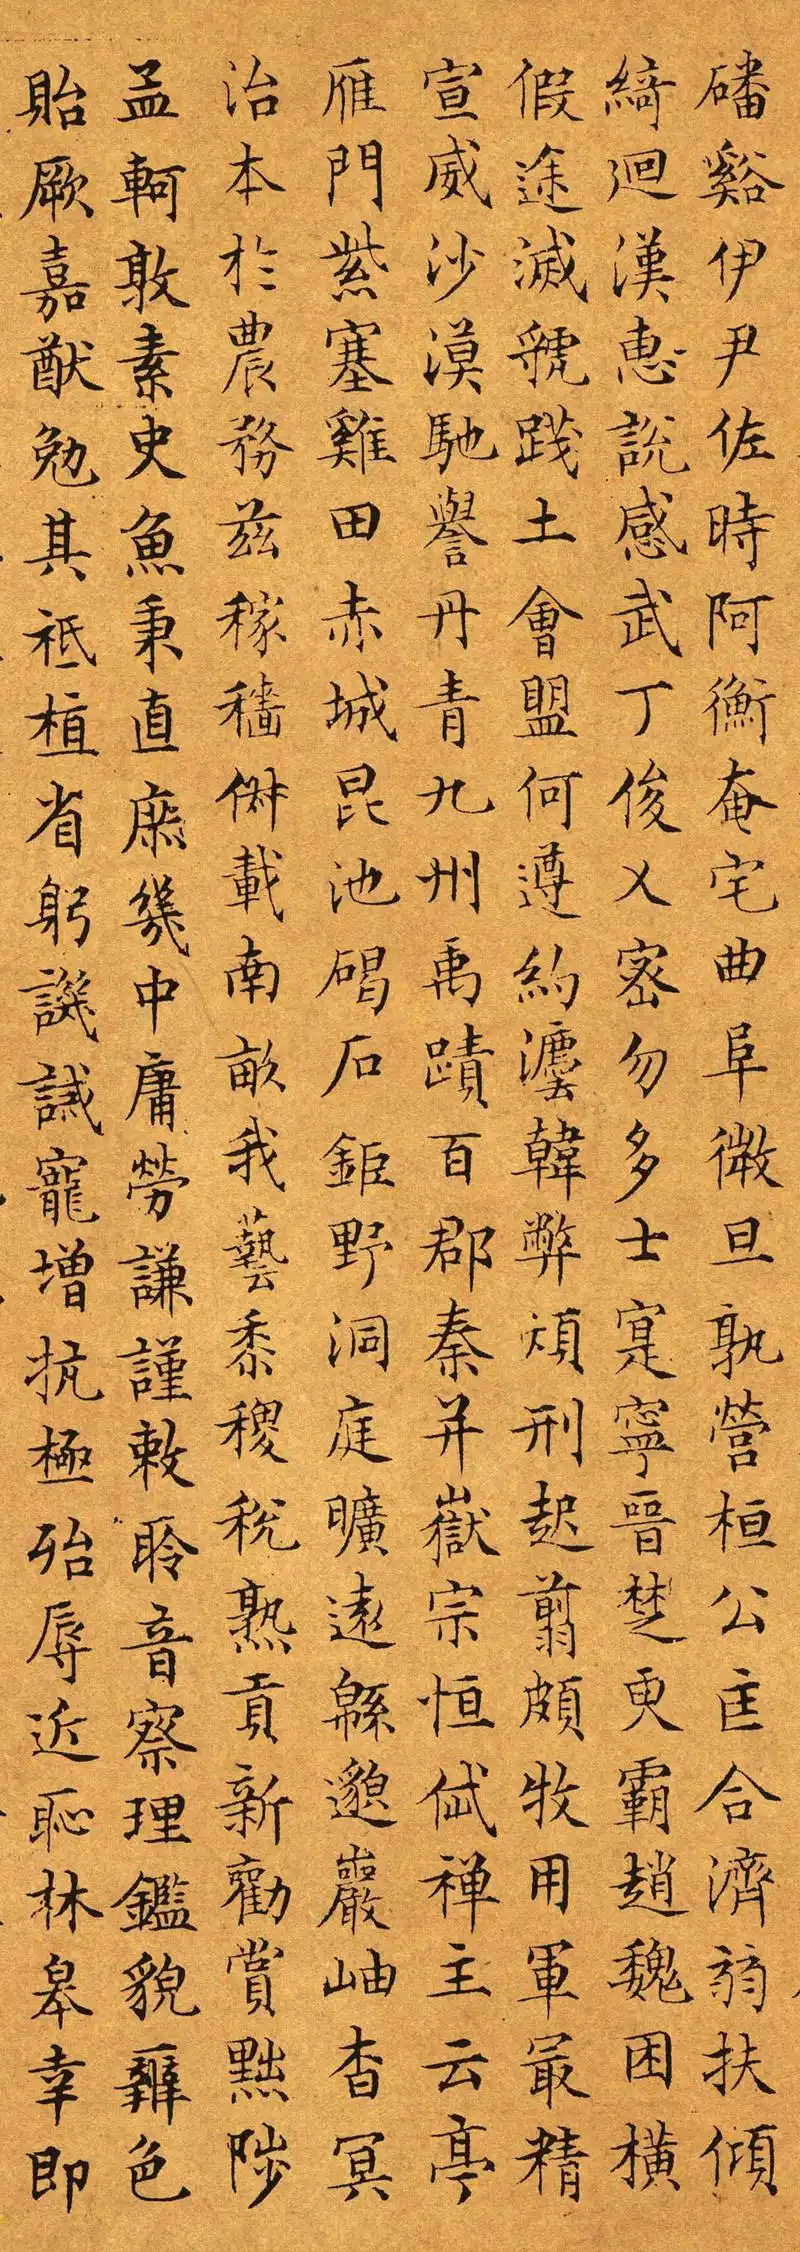 磻谿伊尹佐時阿衡奄宅曲阜微旦孰營桓公匡合濟弱扶傾
綺迴漢惠說感武丁俊乂密勿多士寔寧晉楚更霸趙魏困橫
假途滅虢踐土會盟何遵約法韓弊煩刑起翦頗牧用軍最精
宣威沙漠馳譽丹青九州禹蹟百郡秦并嶽宗恒岱禪主云亭
雁門紫塞雞田赤城昆池碣石鉅野洞庭曠遠緜邈巖岫杳冥
治本於農務茲稼穡俶載南畝我藝黍稷稅熟貢新勸賞黜陟
孟軻敦素史魚秉直庶幾中庸勞謙謹敕聆音察理鑑貌辨色
貽厥嘉猷勉其祗植省躬譏誡寵增抗極殆辱近恥林皋幸即